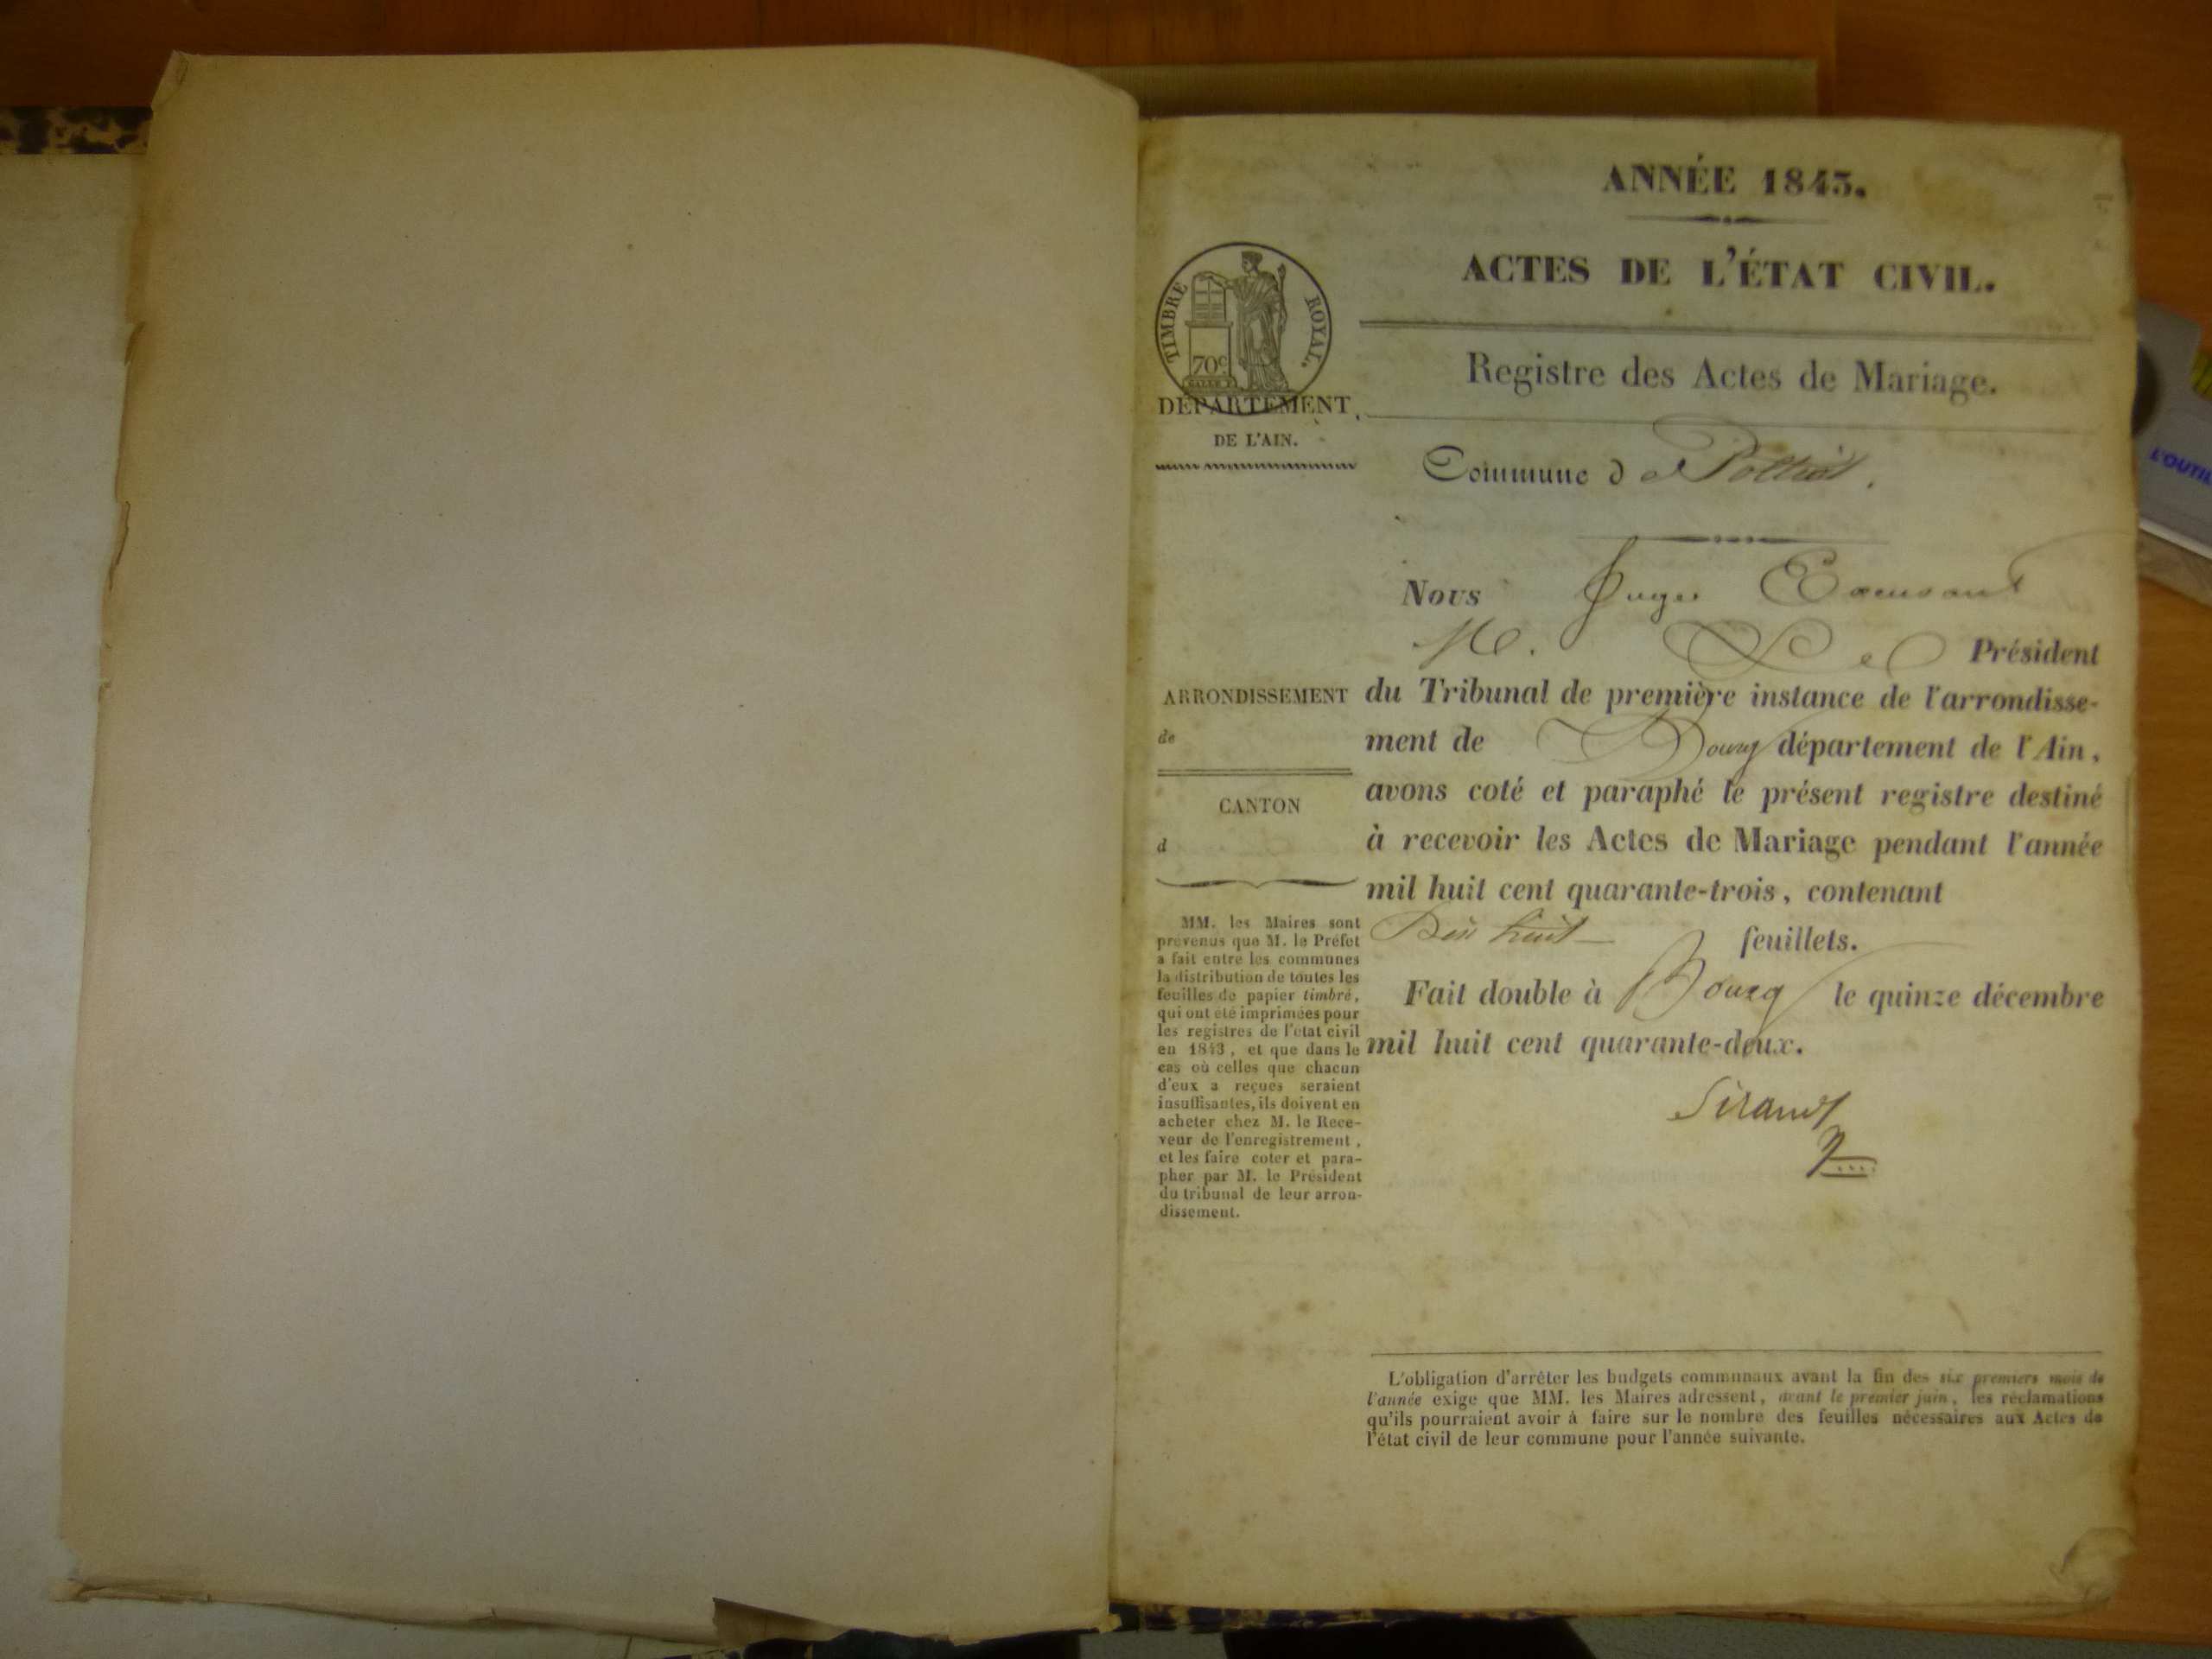 ANNÉE 1843.
ACTES DE L'ÉTAT CIVIL.
TIMBRE ROYAL.
70c
Registre des Actes de Mariage.
DÉPARTEMENT
DE L'AIN.
Commune de Polliat.
Nous Juge
M. Le Président
ARRONDISSEMENT
de
du Tribunal de première instance de l'arrondisse-
ment de Bourg département de l'Ain,
avons coté et paraphé le présent registre destiné
à recevoir les Actes de Mariage pendant l'année
mil huit cent quarante-trois, contenant
Dix huit feuillets.
Fait double à Bourg le quinze décembre
mil huit cent quarante-deux.
Sirand
CANTON
d
MM. les Maires sont
prévenus que M. le Préfet
a fait entre les communes
la distribution de toutes les
feuilles de papier timbré,
qui ont été imprimées pour
les registres de l'état civil
en 1843, et que dans le
cas où celles que chacun
d'eux a reçues seraient
insuffisantes, ils doivent en
acheter chez M. le Rece-
veur de l'enregistrement,
et les faire coter et para-
pher par M. le Président
du tribunal de leur arron-
dissement.
L'obligation d'arrêter les budgets communaux avant la fin des six premiers mois de
l'année exige que MM. les Maires adressent, avant le premier juin, les réclamations
qu'ils pourraient avoir à faire sur le nombre des feuilles nécessaires aux Actes de
l'état civil de leur commune pour l'année suivante.
L'OUTIL